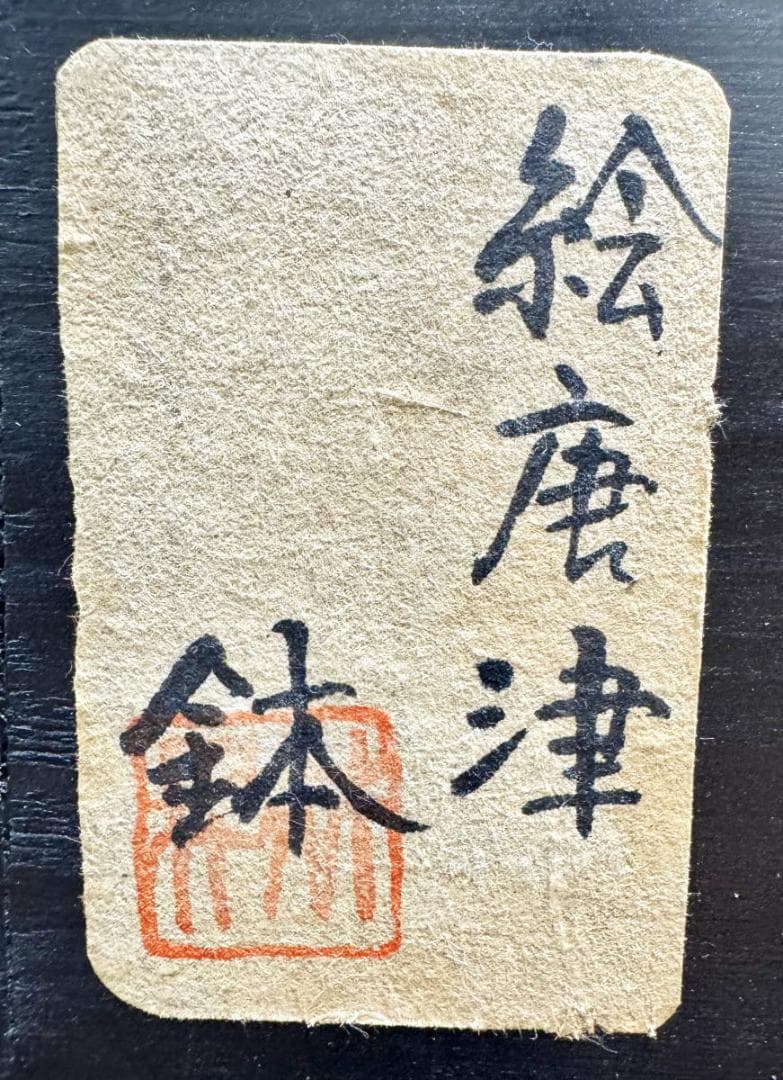 絵唐津
鉢